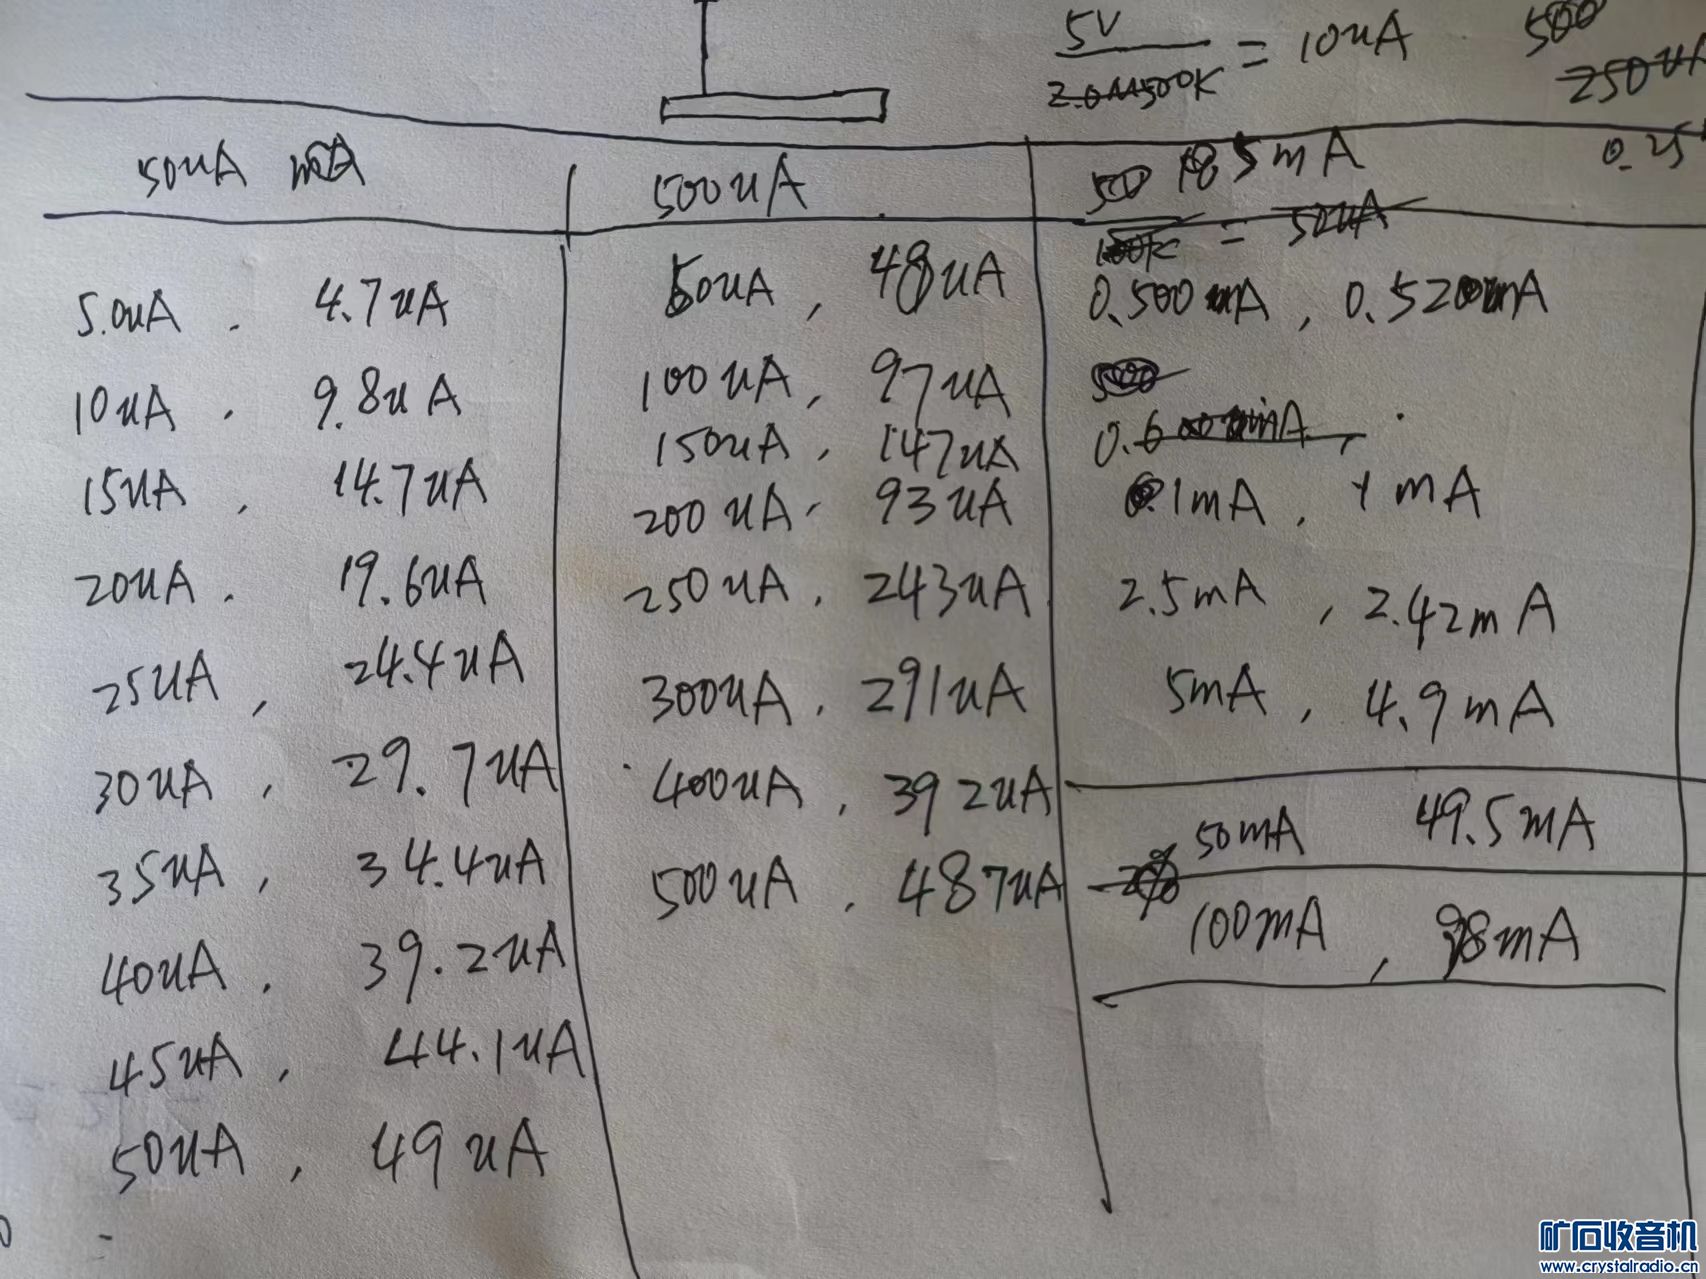 5V
= 10uA
500K
500
250uA
0.25
50uA
500uA
5mA
= 50uA
5.0uA , 4.7uA
10uA , 9.8uA
15uA , 14.7uA
20uA , 19.6uA
25uA , 24.4uA
30uA , 29.7uA
35uA , 34.4uA
40uA , 39.2uA
45uA , 44.1uA
50uA , 49uA
50uA , 48uA
100uA , 97uA
150uA , 147uA
200uA , 93uA
250uA , 243uA
300uA , 291uA
400uA , 392uA
500uA , 487uA
0.500mA , 0.520mA
1mA , 1mA
2.5mA , 2.42mA
5mA , 4.9mA
50mA 49.5mA
100mA , 98mA
矿石收音机
www.crystalradio.cn